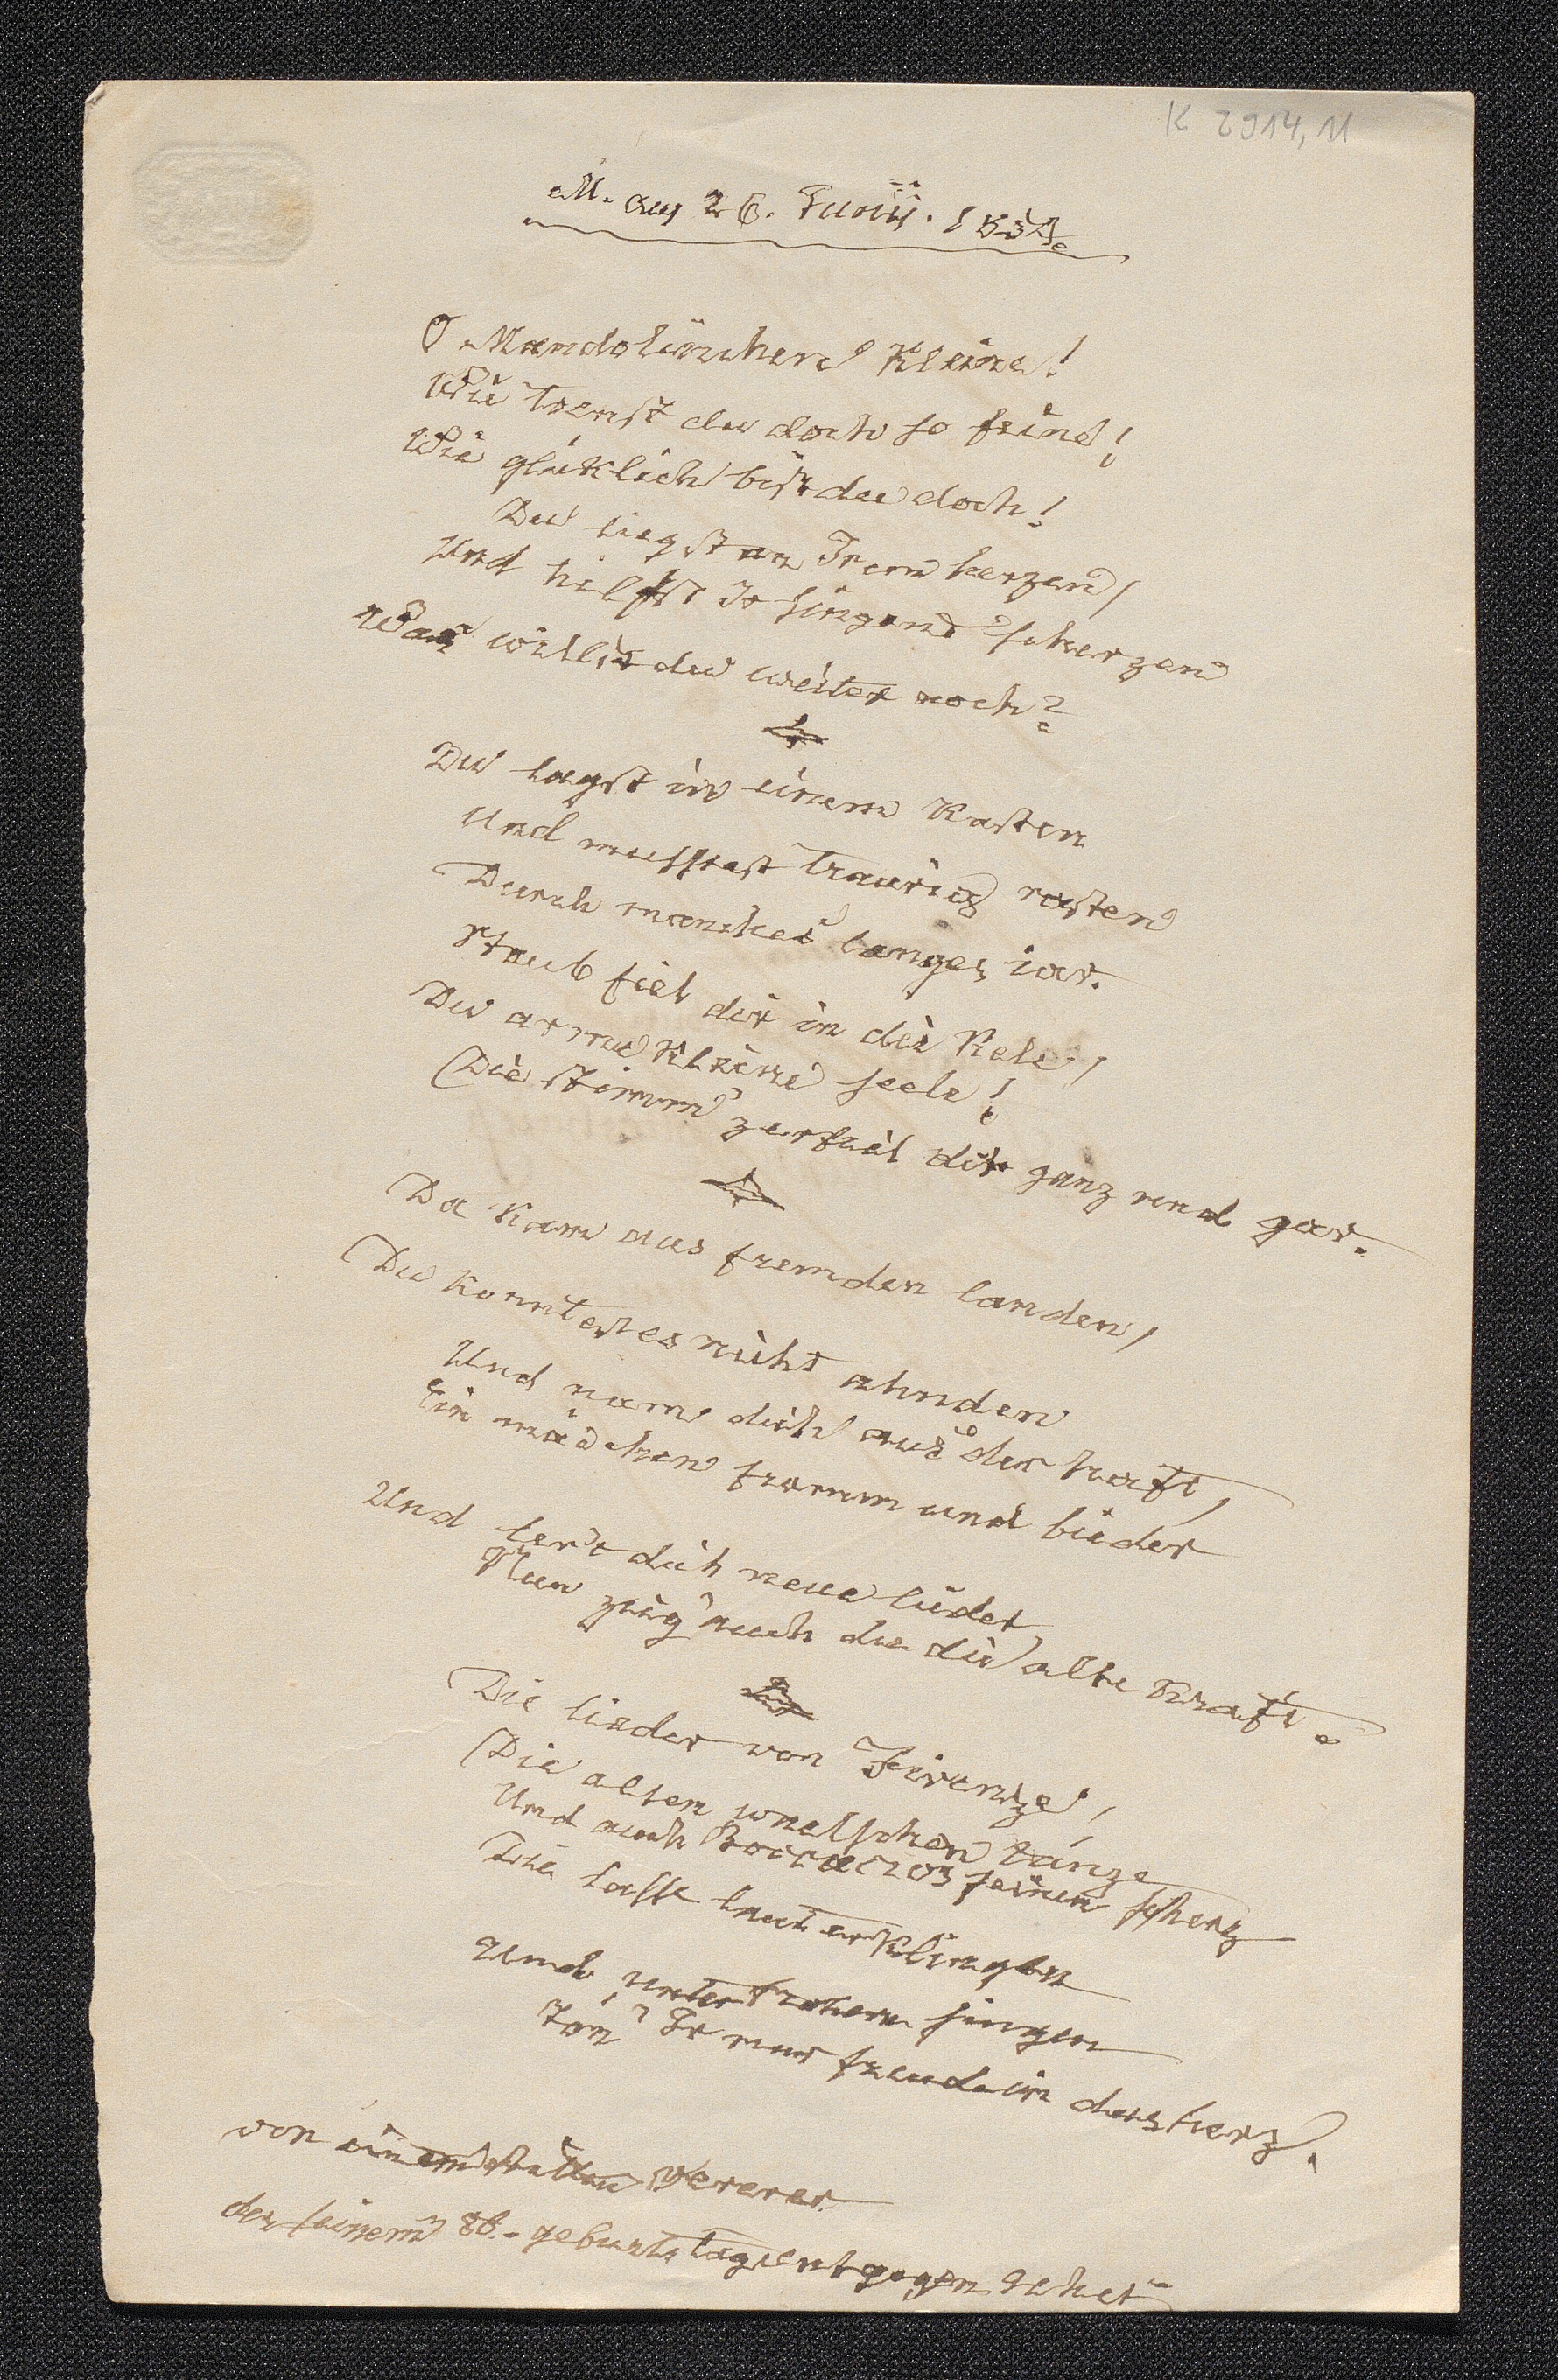 K 2914,11
M. am 26. Junii. 1854.
O Mandolinchen kleine!
Wie toenst du doch so feine!
Wie glüklich bist du doch!
Du liegst an Irem herzen,
Und hilfst Ir singend scherzen
Was willst du weiter noch?
Du lagst in einem kasten
Und musstest traurig rasten
Durch manches langes iar.
Staub fiel dir in die kele,
Du arme kleine seele!
Die stimm' zerfiel dir ganz und gar.
Da kam aus fremden landen,
Du konntest es nicht ahnden
Und nam dich aus der haft,
Ein mädchen fromm und bieder
Und lert dich neue lieder
Nun zeig' auch du die alte kraft.
Die lieder von Firenze,
Die alten waelschen tänze
Und auch Boccaczos feinen scherz
Die lasse laut erklingen
Und unter frohem singen
Tön' Ir nur freude in das herz.
von einem alten Vererer
der seinem 86. geburtstage entgegen gehet